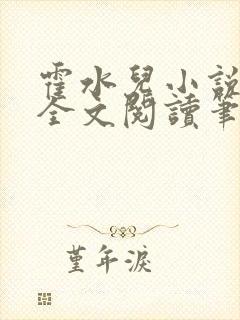 霍水兒小說
全文閱讀筆
堇年淚